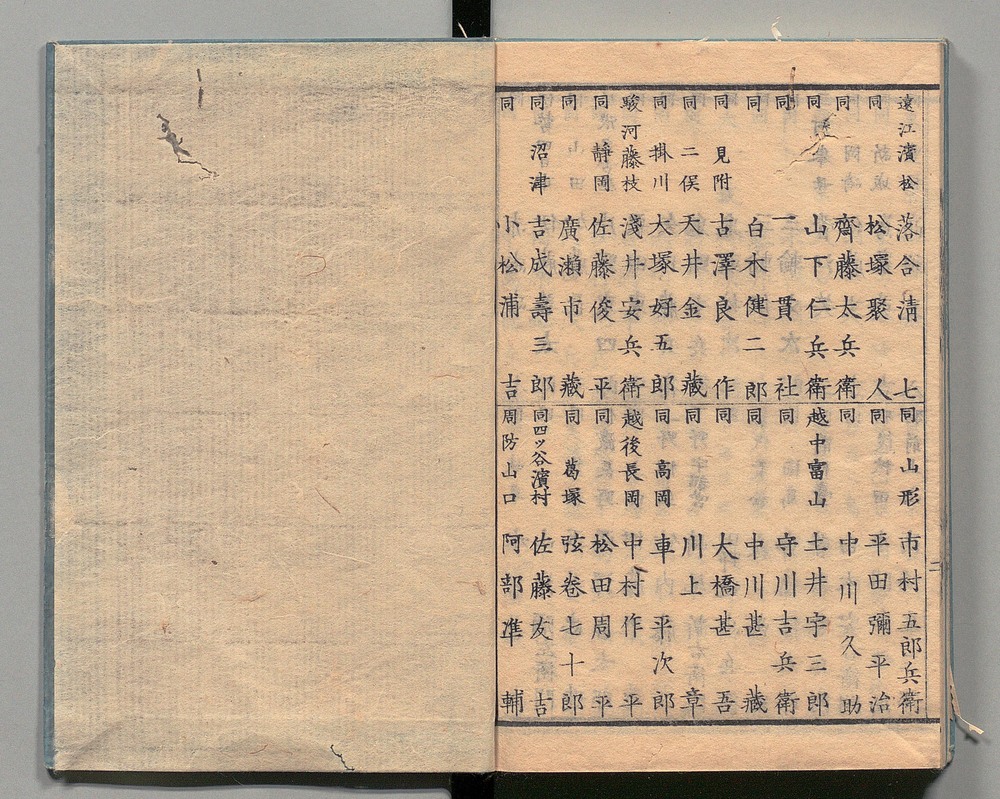 遠江濱松 落合淸七
同 松塚聚人
同 齊藤太兵衛
同 山下仁兵衛
同 一貫社
同 白木健二郎
同 見附 古澤良作
同 二俣 天井金藏
同 掛川 大塚好五郎
駿河藤枝 淺井安兵衛
同 靜岡 佐藤俊平
同 廣瀨市藏
同 沼津 吉成壽三郎
同 小松浦吉
同 山形 市村五郎兵衛
同 平田彌平治
同 中川久助
越中富山 土井宇三郎
同 守川吉兵衛
同 中川甚藏
同 大橋甚吾
川上章
同 高岡 車平次郎
越後長岡 中村作平
同 松田周平
同 葛塚 弦卷七十郎
同四ツ谷濱村 佐藤友吉
周防山口 阿部準輔
二